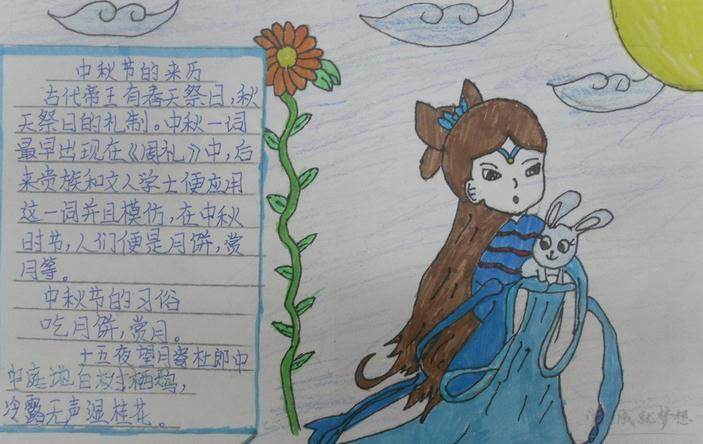 中秋节的来历
古代帝王有春天祭日,秋
天祭日的礼制。中秋一词
最早出现在《周礼》中,后
来贵族和文人学士便应用
这一词并且模仿,在中秋
时节,人们便是月饼,赏
月等。
中秋节的习俗
吃月饼,赏月。
十五夜望月寄杜郎中
中庭地白树栖鸦,
冷露无声湿桂花。
成就梦想